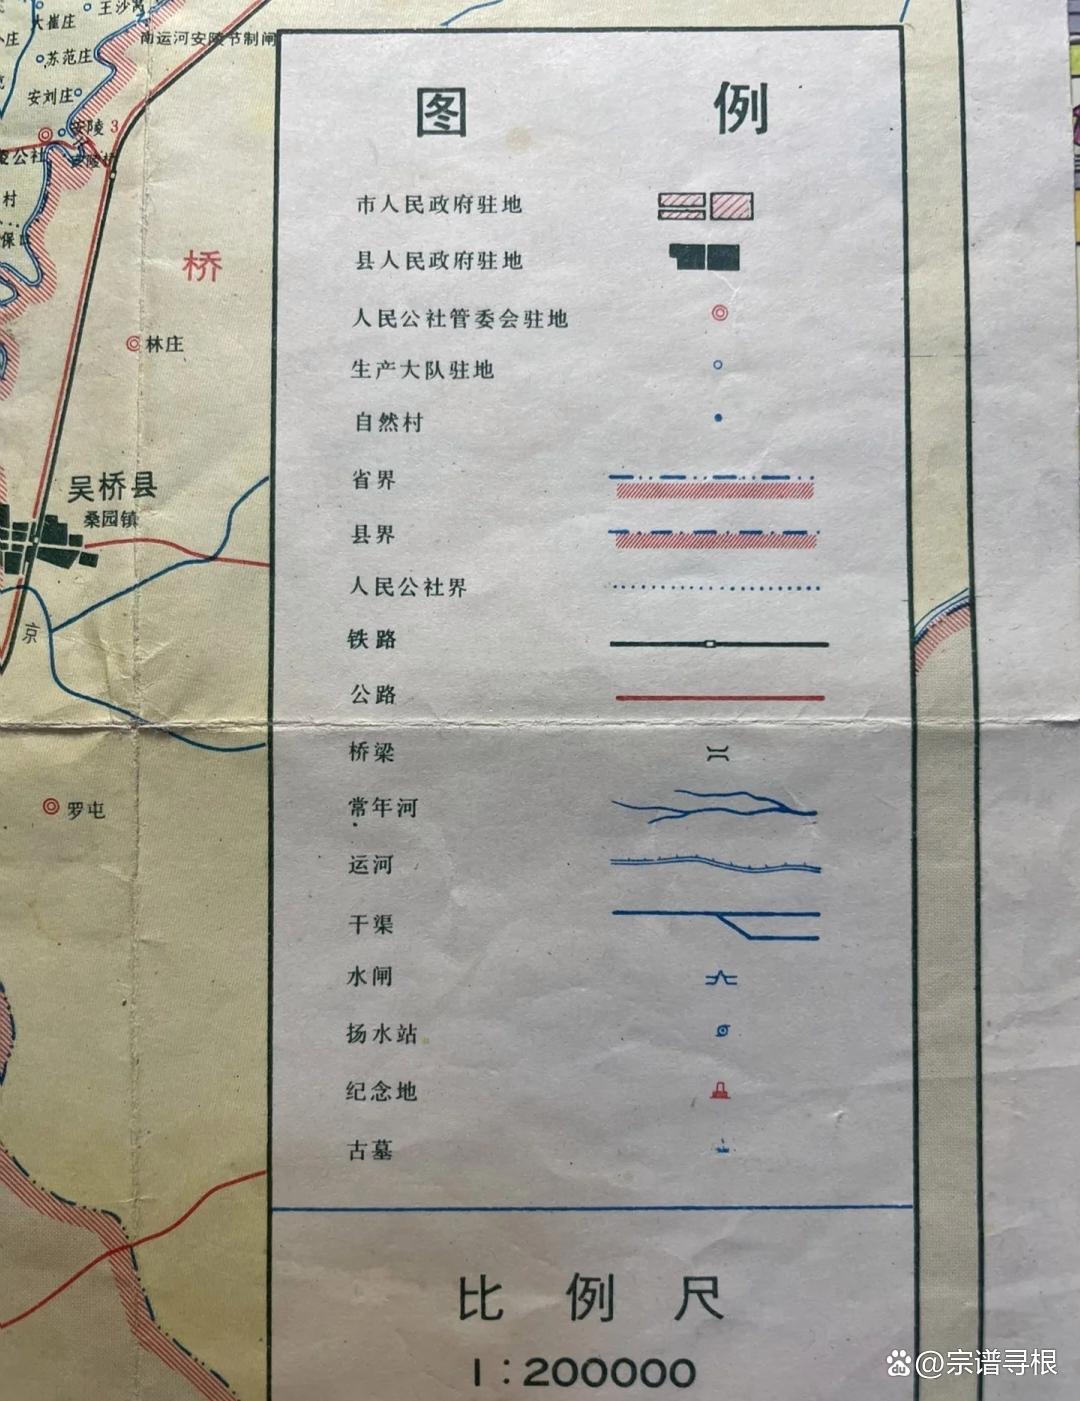 大崔庄
王沙窝
南运河安陵节制闸
苏范庄
安刘庄
安陵 3
公社
安陵村
村
桥
林庄
吴桥县
桑园镇
京
罗屯
图 例
市人民政府驻地
县人民政府驻地
人民公社管委会驻地
生产大队驻地
自然村
省界
县界
人民公社界
铁路
公路
桥梁
常年河
运河
干渠
水闸
扬水站
纪念地
古墓
比 例 尺
1:200000
@宗谱寻根